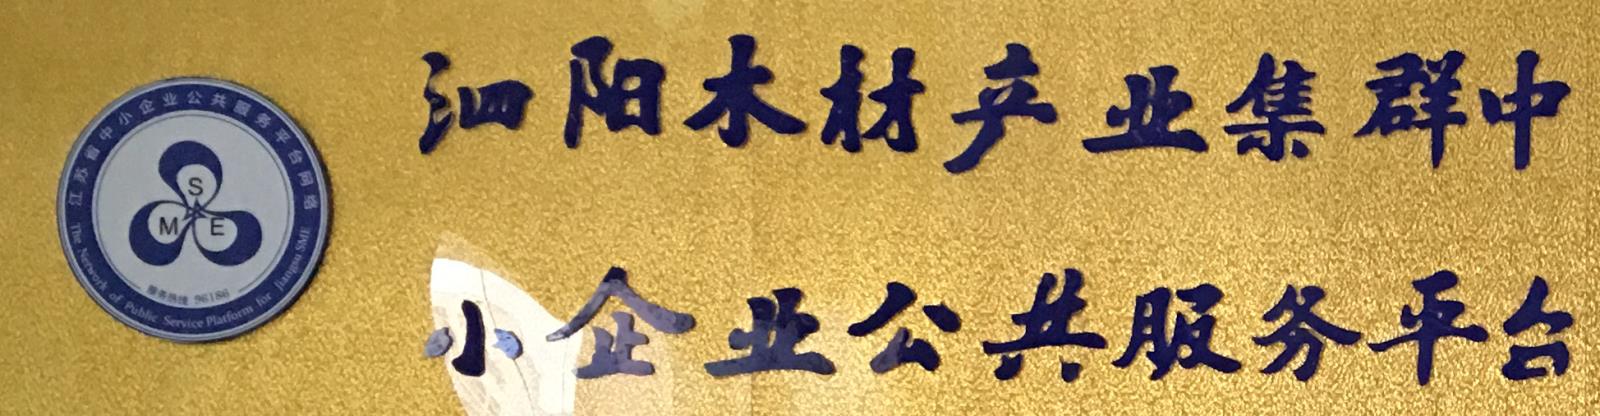 江苏省中小企业公共服务平台网络
S
M E
服务热线 96186
The Network of Public Service Platform for Jiangsu SME
泗阳木材产业集群中
小企业公共服务平台